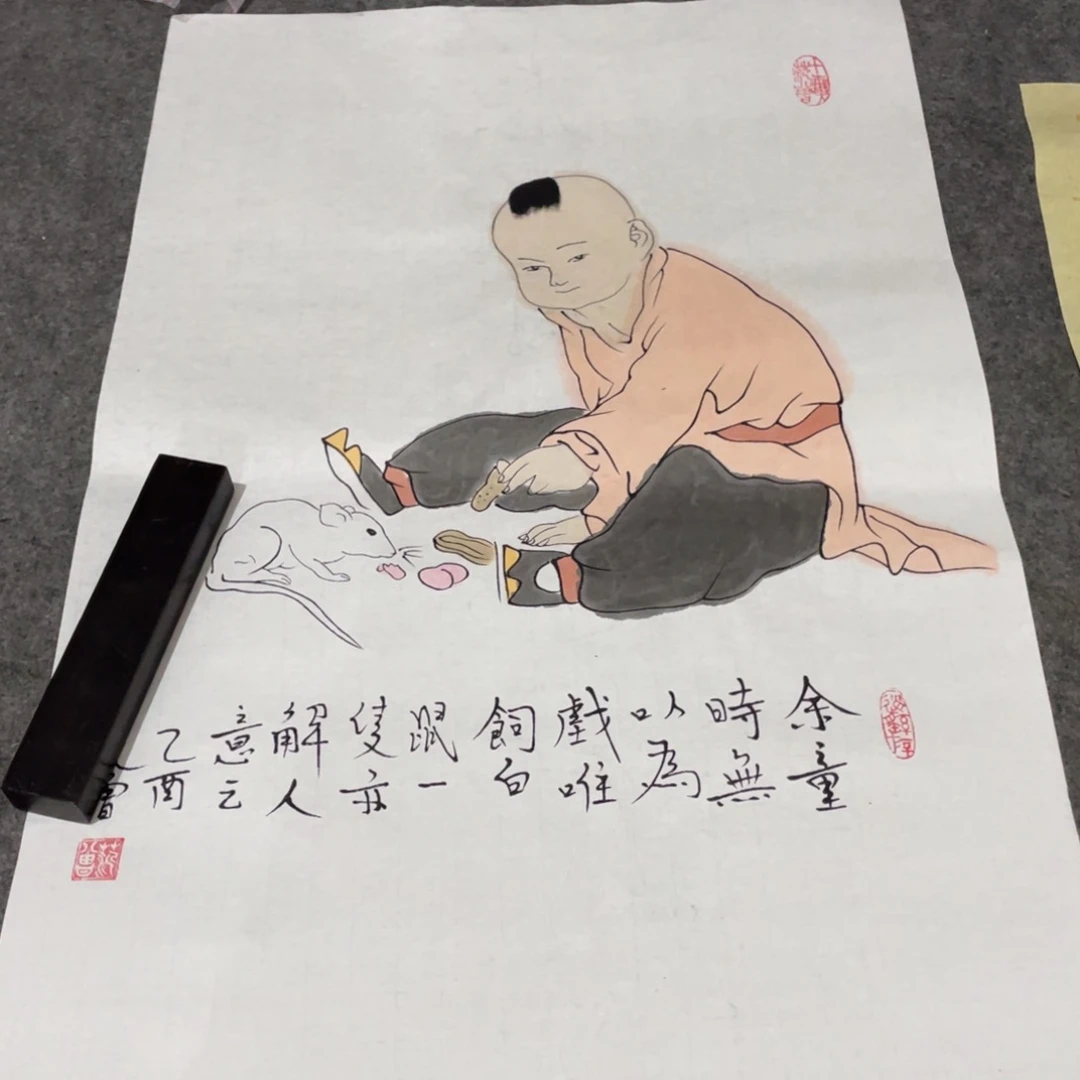 余童
時無
以為
戲唯
飼白
鼠一
隻亦
解人
意云
乙酉
曾